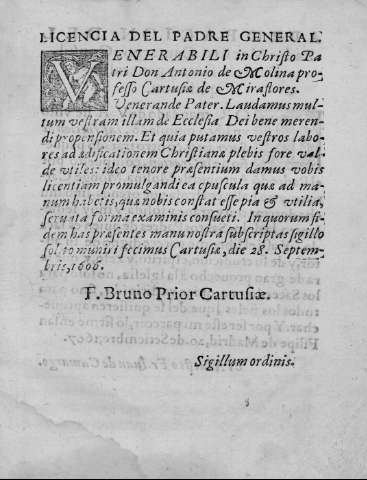 LICENCIA DEL PADRE GENERAL.
VENERABILI in Christo Pa
tri Don Antonio de Molina pro-
fesso Cartusiæ de Miraflores.
Venerande Pater. Laudamus mul-
tum vestram illam de Ecclesia Dei bene meren-
di propensionem. Et quia putamus vestros labo-
res ad ædificationem Christianæ plebis fore val-
de vtiles: ideo tenore præsentium damus vobis
licentiam promulgandi ea opuscula quæ ad ma-
num habetis, quæ nobis constat esse pia & vtilia,
seruata forma examinis consueti. In quorum fi-
dem has præsentes manu nostra subscriptas sigillo
solito muniri fecimus Cartusiæ, die 28. Septem-
bris, 1606.
F. Bruno Prior Cartusiæ.
Sigillum ordinis.